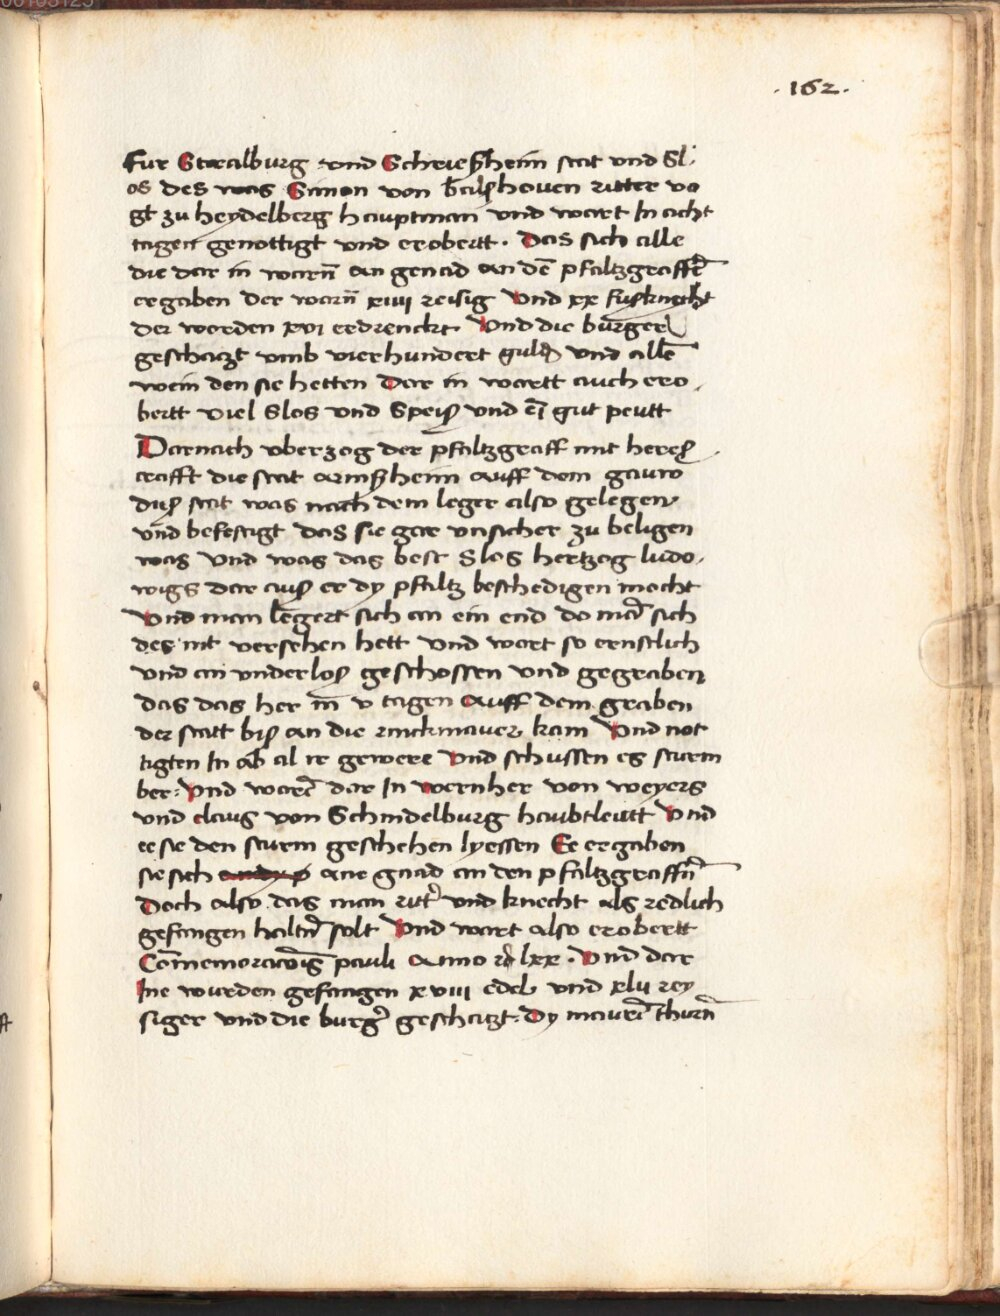 .162.
Fur Stralburg und Schrieszheim stat und Sl
os des was Simon von balszhouen ritter vo
gt zu heydelberg hauptman und wart In acht
tagen genottigt und erobertt. Das sich alle
die dar in warñ an genad an dē pfaltzgraffē
ergaben der warñ xiiii reisig Und xx fuszknecht
der worden xvi erdrenckt Und die burger
geschaczt umb vierhundert guldñ und allē
wein den sie hetten Dar in wartt auch ero
bertt viel Slos und Speisz und eī gut peutt
Darnach uberzog der pfaltzgraff mit heresz
crafft die stat armszheim auff dem gauw
disz stat was nach dem leger also gelegen
und befestigt das sie gar unsicher zu beligen
was Und was das best Slos hertzog ludo
wigs dar ausz er dy pfaltz beschedigen mocht
Und man legert sich an ein end do mā sich
des nit versehen hett Und wart so ernstlich
und an underlosz geschossen und gegraben
das das her in v tagen auff dem graben
der statt bisz an die rinckmauer kam Und not
tigten In ab al ir gewere Und schussen es sturm
ber. Und warē dar In wernher von weyers
und claus von Schindelburg haubtleutt Und
ee sie den sturm geschehen lyessen Ee ergaben
sie sich ane gnad an den pfaltzgraffñ
Doch also das man rittr und knecht als redlich
gefangen haltñ solt Und wart also erobertt
Cōmemoracōis pauli Anno lxx. Und dar
Ine wurden gefangen xviii edel und xlii rey
siger und die burgr geschatzt. Dy maurē thurñ